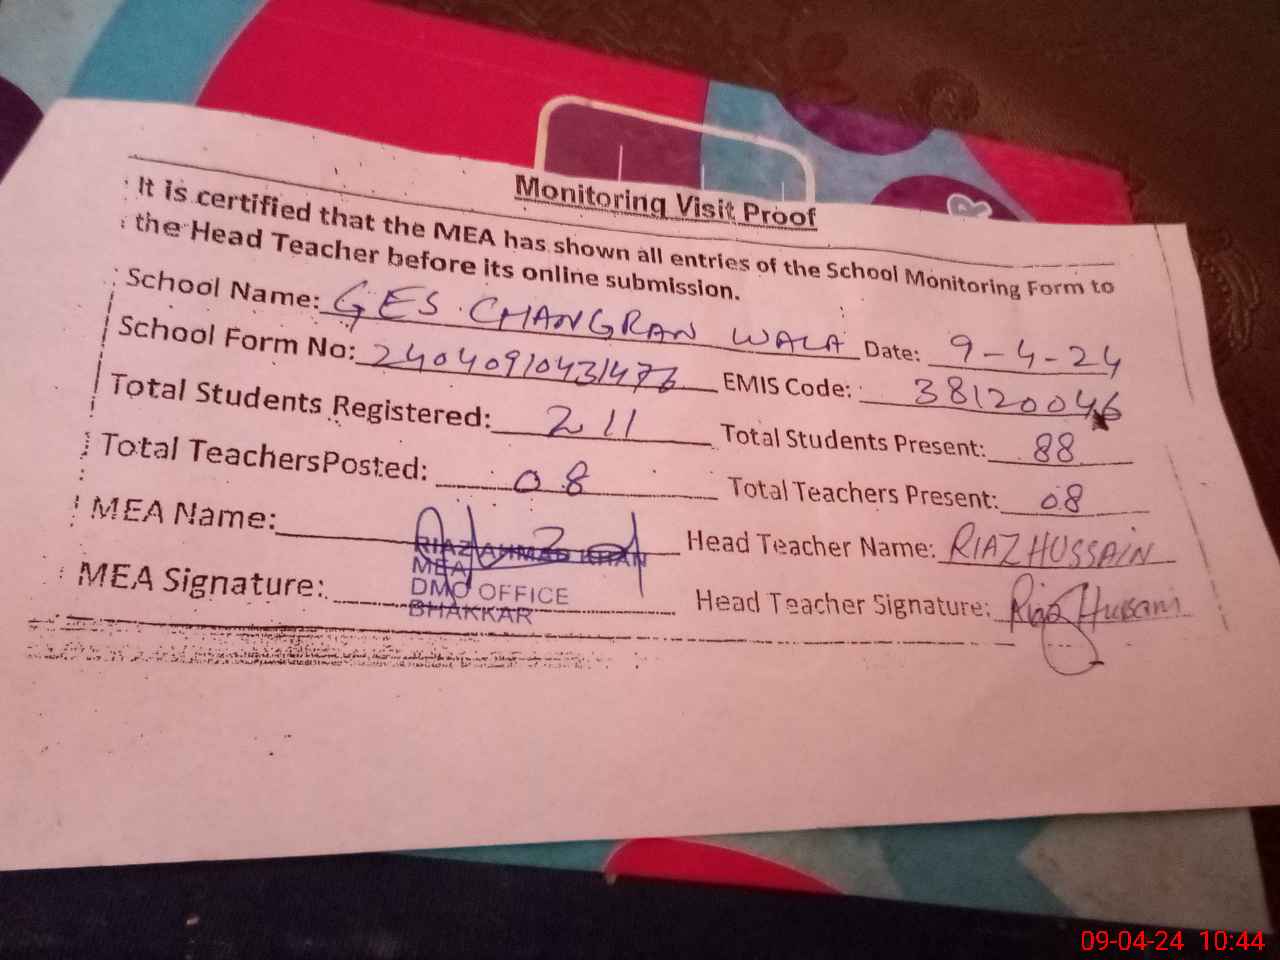 Monitoring Visit Proof
It is certified that the MEA has shown all entries of the School Monitoring Form to
the Head Teacher before its online submission.
School Name: GES. CHANGRAN WALA Date: 9-4-24
School Form No: 24040910431476 EMIS Code: 38120046
Total Students Registered: 211 Total Students Present: 88
Total TeachersPosted: 08 Total Teachers Present: 08
MEA Name: Head Teacher Name: RIAZ HUSSAIN
RIAZ AHMAD KHAN
MEA
MEA Signature: DMO OFFICE Head Teacher Signature: Riaz Hussain
BHAKKAR
09-04-24 10:44